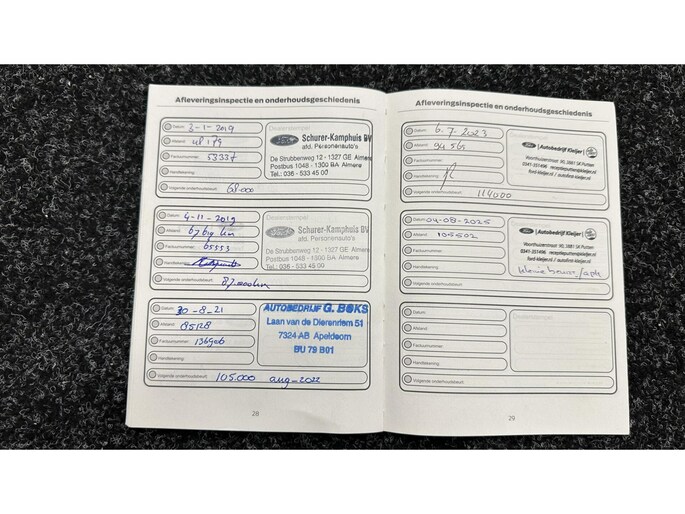 Afleveringsinspectie en onderhoudsgeschiedenis
Datum: 3-1-2019
Afstand: 48179
Factuurnummer: 53337
Handtekening:
Volgende onderhoudsbeurt: 68.000
Dealerstempel:
Ford Schurer-Kamphuis BV
afd. Personenauto's
De Strubbenweg 12 - 1327 GE Almere
Postbus 1048 - 1300 BA Almere
Tel.: 036 - 533 45 00
Datum: 4-11-2019
Afstand: 67619 km
Factuurnummer: 65553
Handtekening:
Volgende onderhoudsbeurt: 87.000 km
Dealerstempel:
Ford Schurer-Kamphuis BV
afd. Personenauto's
De Strubbenweg 12 - 1327 GE Almere
Postbus 1048 - 1300 BA Almere
Tel.: 036 - 533 45 00
Datum: 30-8-21
Afstand: 85128
Factuurnummer: 136906
Handtekening:
Volgende onderhoudsbeurt: 105.000 aug-2022
AUTOBEDRIJF G. BOKS
Laan van de Dierenriem 51
7324 AB Apeldoorn
BU 79 B01
28
Afleveringsinspectie en onderhoudsgeschiedenis
Datum: 6.7.2023
Afstand: 94565
Factuurnummer:
Handtekening:
Volgende onderhoudsbeurt: 114000
Ford | Autobedrijf Kleijer
Datum: 04-08-2025
Afstand: 105502
Factuurnummer:
Handtekening:
Volgende onderhoudsbeurt:
Ford | Autobedrijf Kleijer
Datum:
Afstand:
Factuurnummer:
Handtekening:
Volgende onderhoudsbeurt:
Dealerstempel:
29